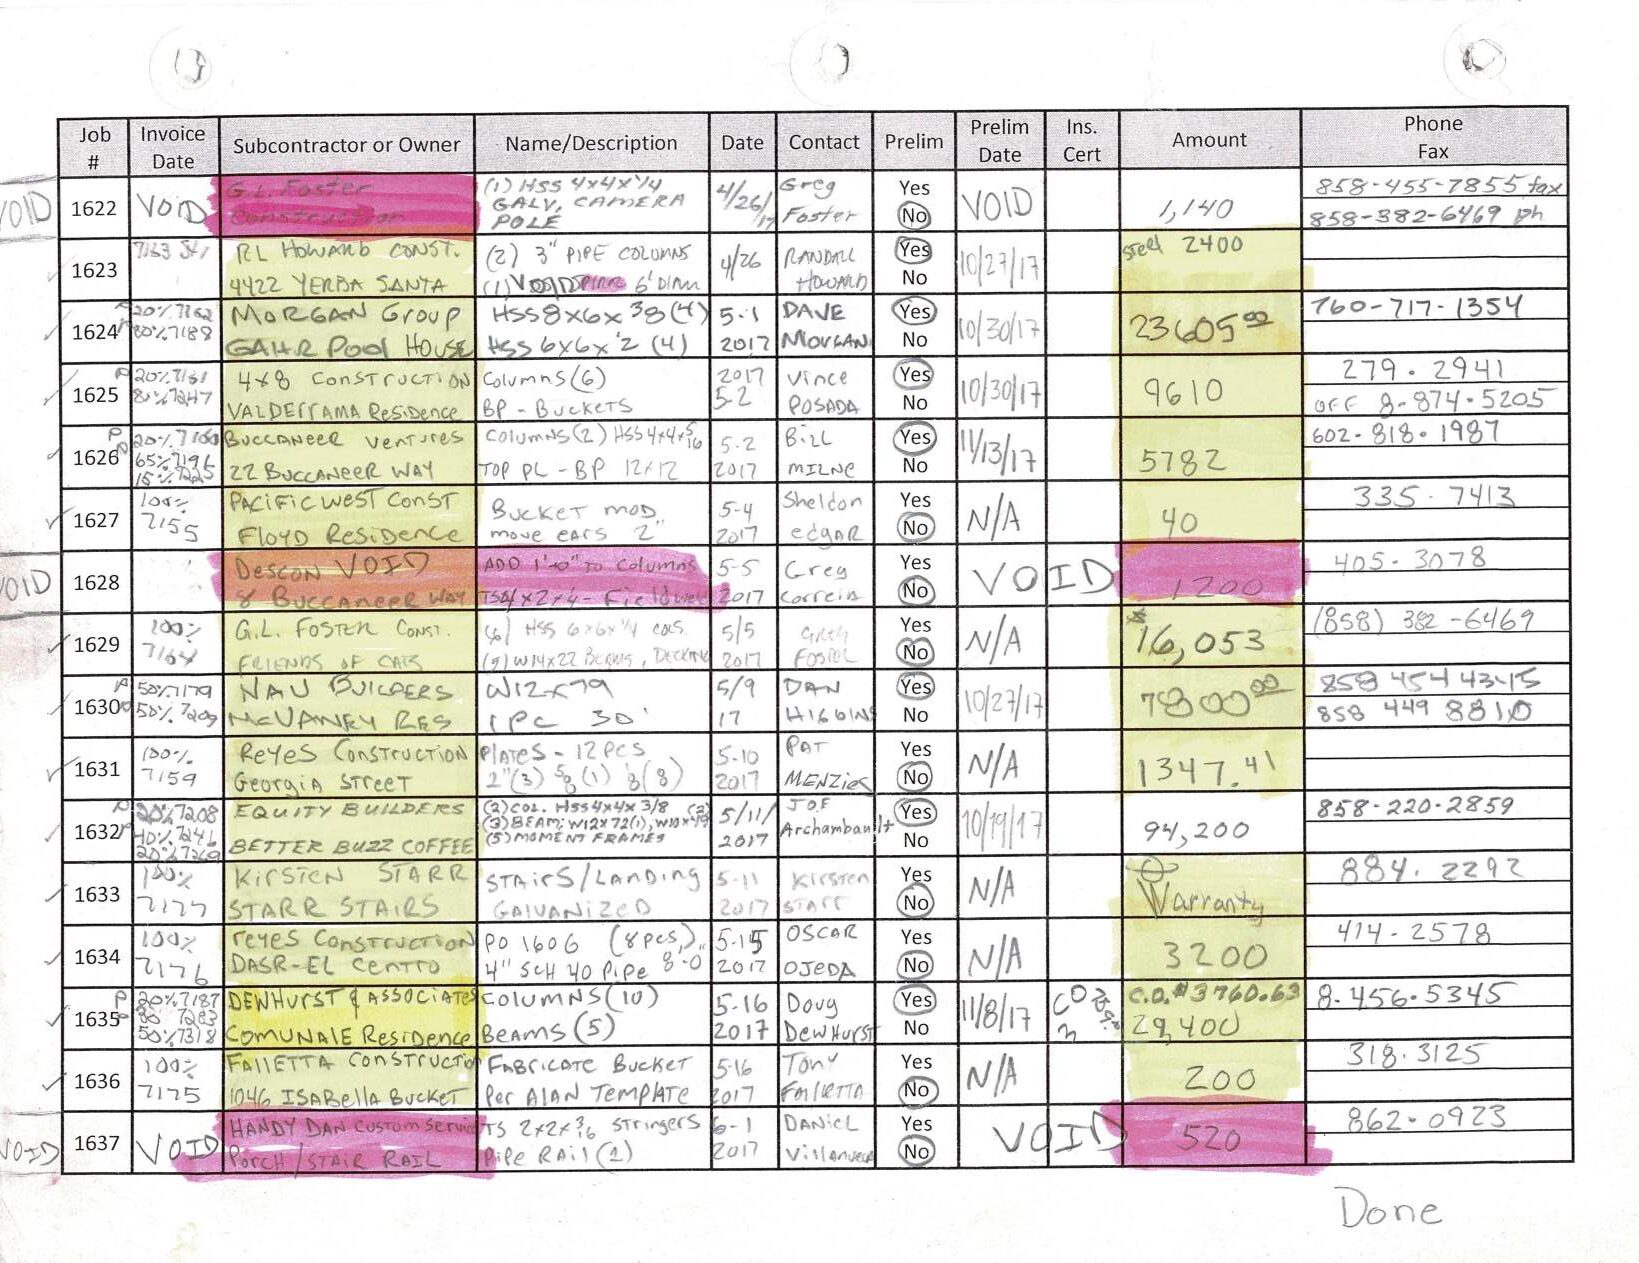 Job # Invoice Date Subcontractor or Owner Name/Description Date Contact Prelim Prelim Date Ins. Cert Amount Phone Fax
VOID 1622 VOID G.L. Foster Construction (1) HSS 4x4x1/4 GALV, CAMERA POLE 4/26/17 Greg Foster Yes No VOID 1,140 858-455-7855 fax 858-382-6469 ph
1623 RL HOWARD CONST. 4422 YERBA SANTA (2) 3" PIPE COLUMNS (1) VOID 6' DIAM 4/26 RANDALL HOWARD Yes No 10/27/17 Steel 2400
1624 20% 7162 80% 7188 MORGAN Group GAHR Pool House HSS 8x6x38 (4) HSS 6x6x'2 (4) 5-1 2017 DAVE MORGAN Yes No 10/30/17 23605.00 760-717-1354
1625 P 20% 7161 80% 7247 4x8 CONSTRUCTION VALDERRAMA Residence Columns (6) BP - BUCKETS 2017 5-2 Vince POSADA Yes No 10/30/17 9610 279.2941 OFF 8-874.5205
1626 P 20% 7160 65% 7196 15% 7225 BUCCANEER Ventures 22 BUCCANEER WAY Columns (2) HSS 4x4x5/16 TOP PL - BP 12x12 5-2 2017 BILL MILNE Yes No 11/13/17 5782 602-818-1987
1627 100% 7155 PACIFIC WEST CONST FLOYD Residence BUCKET MOD move ears 2" 5-4 2017 Sheldon edgAR Yes No N/A 40 335-7413
VOID 1628 DESCON VOID 8 BUCCANEER WAY ADD 1'-0" TO Columns 4x2x4 - Field 5-5 2017 Greg Correia Yes No VOID 1200 405-3078
1629 100% 7164 G.L. FOSTER CONST. FRIENDS OF CATS (6) HSS 6x6x1/4 COLS. (9) W14x22 BEAMS, DECKING 5/5 2017 GREG FOSTER Yes No N/A $16,053 (858) 382-6469
1630 P 50% 7179 50% 7209 NAU BUILDERS McVANEY RES W12x79 1 PC 30' 5/9 17 DAN HIGGINS Yes No 10/27/17 7800.00 858 454 4345 858 449 8810
1631 100% 7159 REYES CONSTRUCTION Georgia Street PLATES - 12 PCS 2"(3) 5/8 (1) (8) 5-10 2017 PAT MENZIES Yes No N/A 1347.41
1632 P 20% 7208 40% 7241 20% 7269 EQUITY BUILDERS BETTER BUZZ COFFEE (2) COL. HSS 4x4x 3/8 (2) (3) BEAM; W12x72(1), (5) MOMENT FRAMES 5/11/2017 JOE Archambault Yes No 10/19/17 94,200 858-220-2859
1633 100% 7177 KIRSTEN STARR STARR STAIRS STAIRS/LANDING GALVANIZED 5-11 2017 KIRSTEN STARR Yes No N/A Warranty 884.2292
1634 100% 7176 REYES CONSTRUCTION DASR-EL CENTRO PO 1606 (8 pcs,) 4" SCH 40 Pipe 8-0 5-15 2017 OSCAR OJEDA Yes No N/A 3200 414-2578
1635 P 20% 7187 30 7283 50% 7318 DEWHURST & ASSOCIATES COMUNALE Residence COLUMNS (10) BEAMS (5) 5-16 2017 Doug DEWHURST Yes No 11/8/17 C.O. #3760.63 29,400 8-456-5345
1636 100% 7175 FALLETTA CONSTRUCTION 1046 ISABELLA BUCKET FABRICATE BUCKET Per ALAN TEMPLATE 5-16 2017 Tony FALLETTA Yes No N/A 200 318-3125
VOID 1637 VOID HANDY DAN CUSTOM SERVICE PORCH/STAIR RAIL TS 2x2x3/16 STRINGERS PIPE RAIL (2) 6-1 2017 DANIEL Villanueva Yes No VOID 520 862-0923
Done